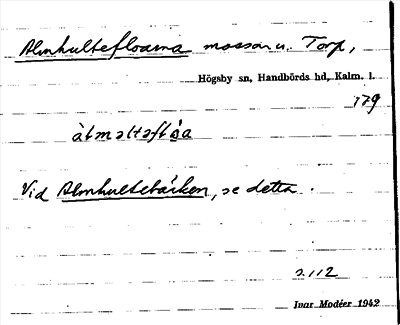 Almhultefloarna mossar u. Torp,
Högsby sn, Handbörds hd, Kalm. l.
179
Vid Almhultebäcken, se detta.
s. 112
Ivar Modéer 1942